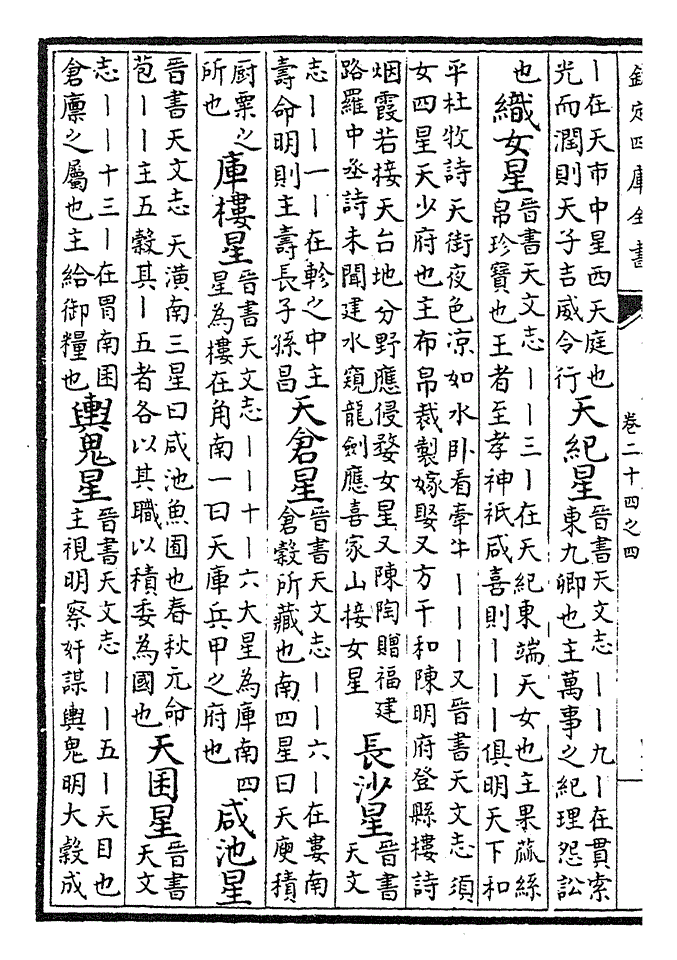 欽定四庫全書
卷二十四之四
丨在天市中星西天庭也
光而潤則天子吉威令行
天紀星
晉書天文志丨丨九丨在貫索
東九卿也主萬事之紀理怨訟
也
織女星
晉書天文志丨丨三丨在天紀東端天女也主果蓏絲
帛珍寶也王者至孝神祇咸喜則丨丨丨俱明天下和
平杜牧詩天街夜色凉如水卧看牽牛丨丨丨又晉書天文志須
女四星天少府也主布帛裁製嫁娶又方干和陳明府登縣樓詩
烟霞若接天台地分野應侵婺女星又陳陶贈福建
路羅中丞詩未聞建水窺龍劍應喜家山接女星
長沙星
晉書
天文
志丨丨一丨在軫之中主
壽命明則主壽長子孫昌
天倉星
晉書天文志丨丨六丨在婁南
倉穀所藏也南四星曰天庾積
厨粟之
所也
庫樓星
晉書天文志丨丨十丨六大星為庫南四
星為樓在角南一曰天庫兵甲之府也
咸池星
晉書天文志天潢南三星曰咸池魚囿也春秋元命
苞丨丨主五穀其丨五者各以其職以積委為國也
天囷星
晉書
天文
志丨丨十三丨在胃南囷
倉廪之屬也主給御糧也
輿鬼星
晉書天文志丨丨五丨天目也
主視明察奸謀輿鬼明大穀成